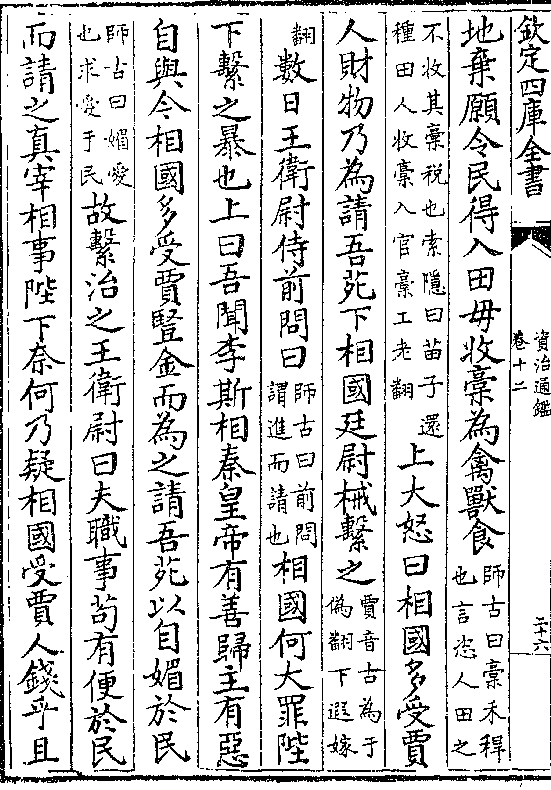 欽定四庫全書
資治通鑑
卷十二
二十六
地棄願令民得入田毋收稾為禽獸食師古曰稾禾稈也言恣人田之
不收其稾稅也索隱曰苗子還種田人收稾入官稾工老翻上大怒曰相國多受賈
人財物乃為請吾苑下相國廷尉械繫之賈音古為于偽翻下遐嫁
翻數日王衛尉侍前問曰師古曰前問謂進而請也相國何大罪陛
下繫之暴也上曰吾聞李斯相秦皇帝有善歸主有惡
自與今相國多受賈豎金而為之請吾苑以自媚於民
師古曰媚愛也求愛于民故繫治之王衛尉曰夫職事苟有便於民
而請之真宰相事陛下奈何乃疑相國受賈人錢乎且